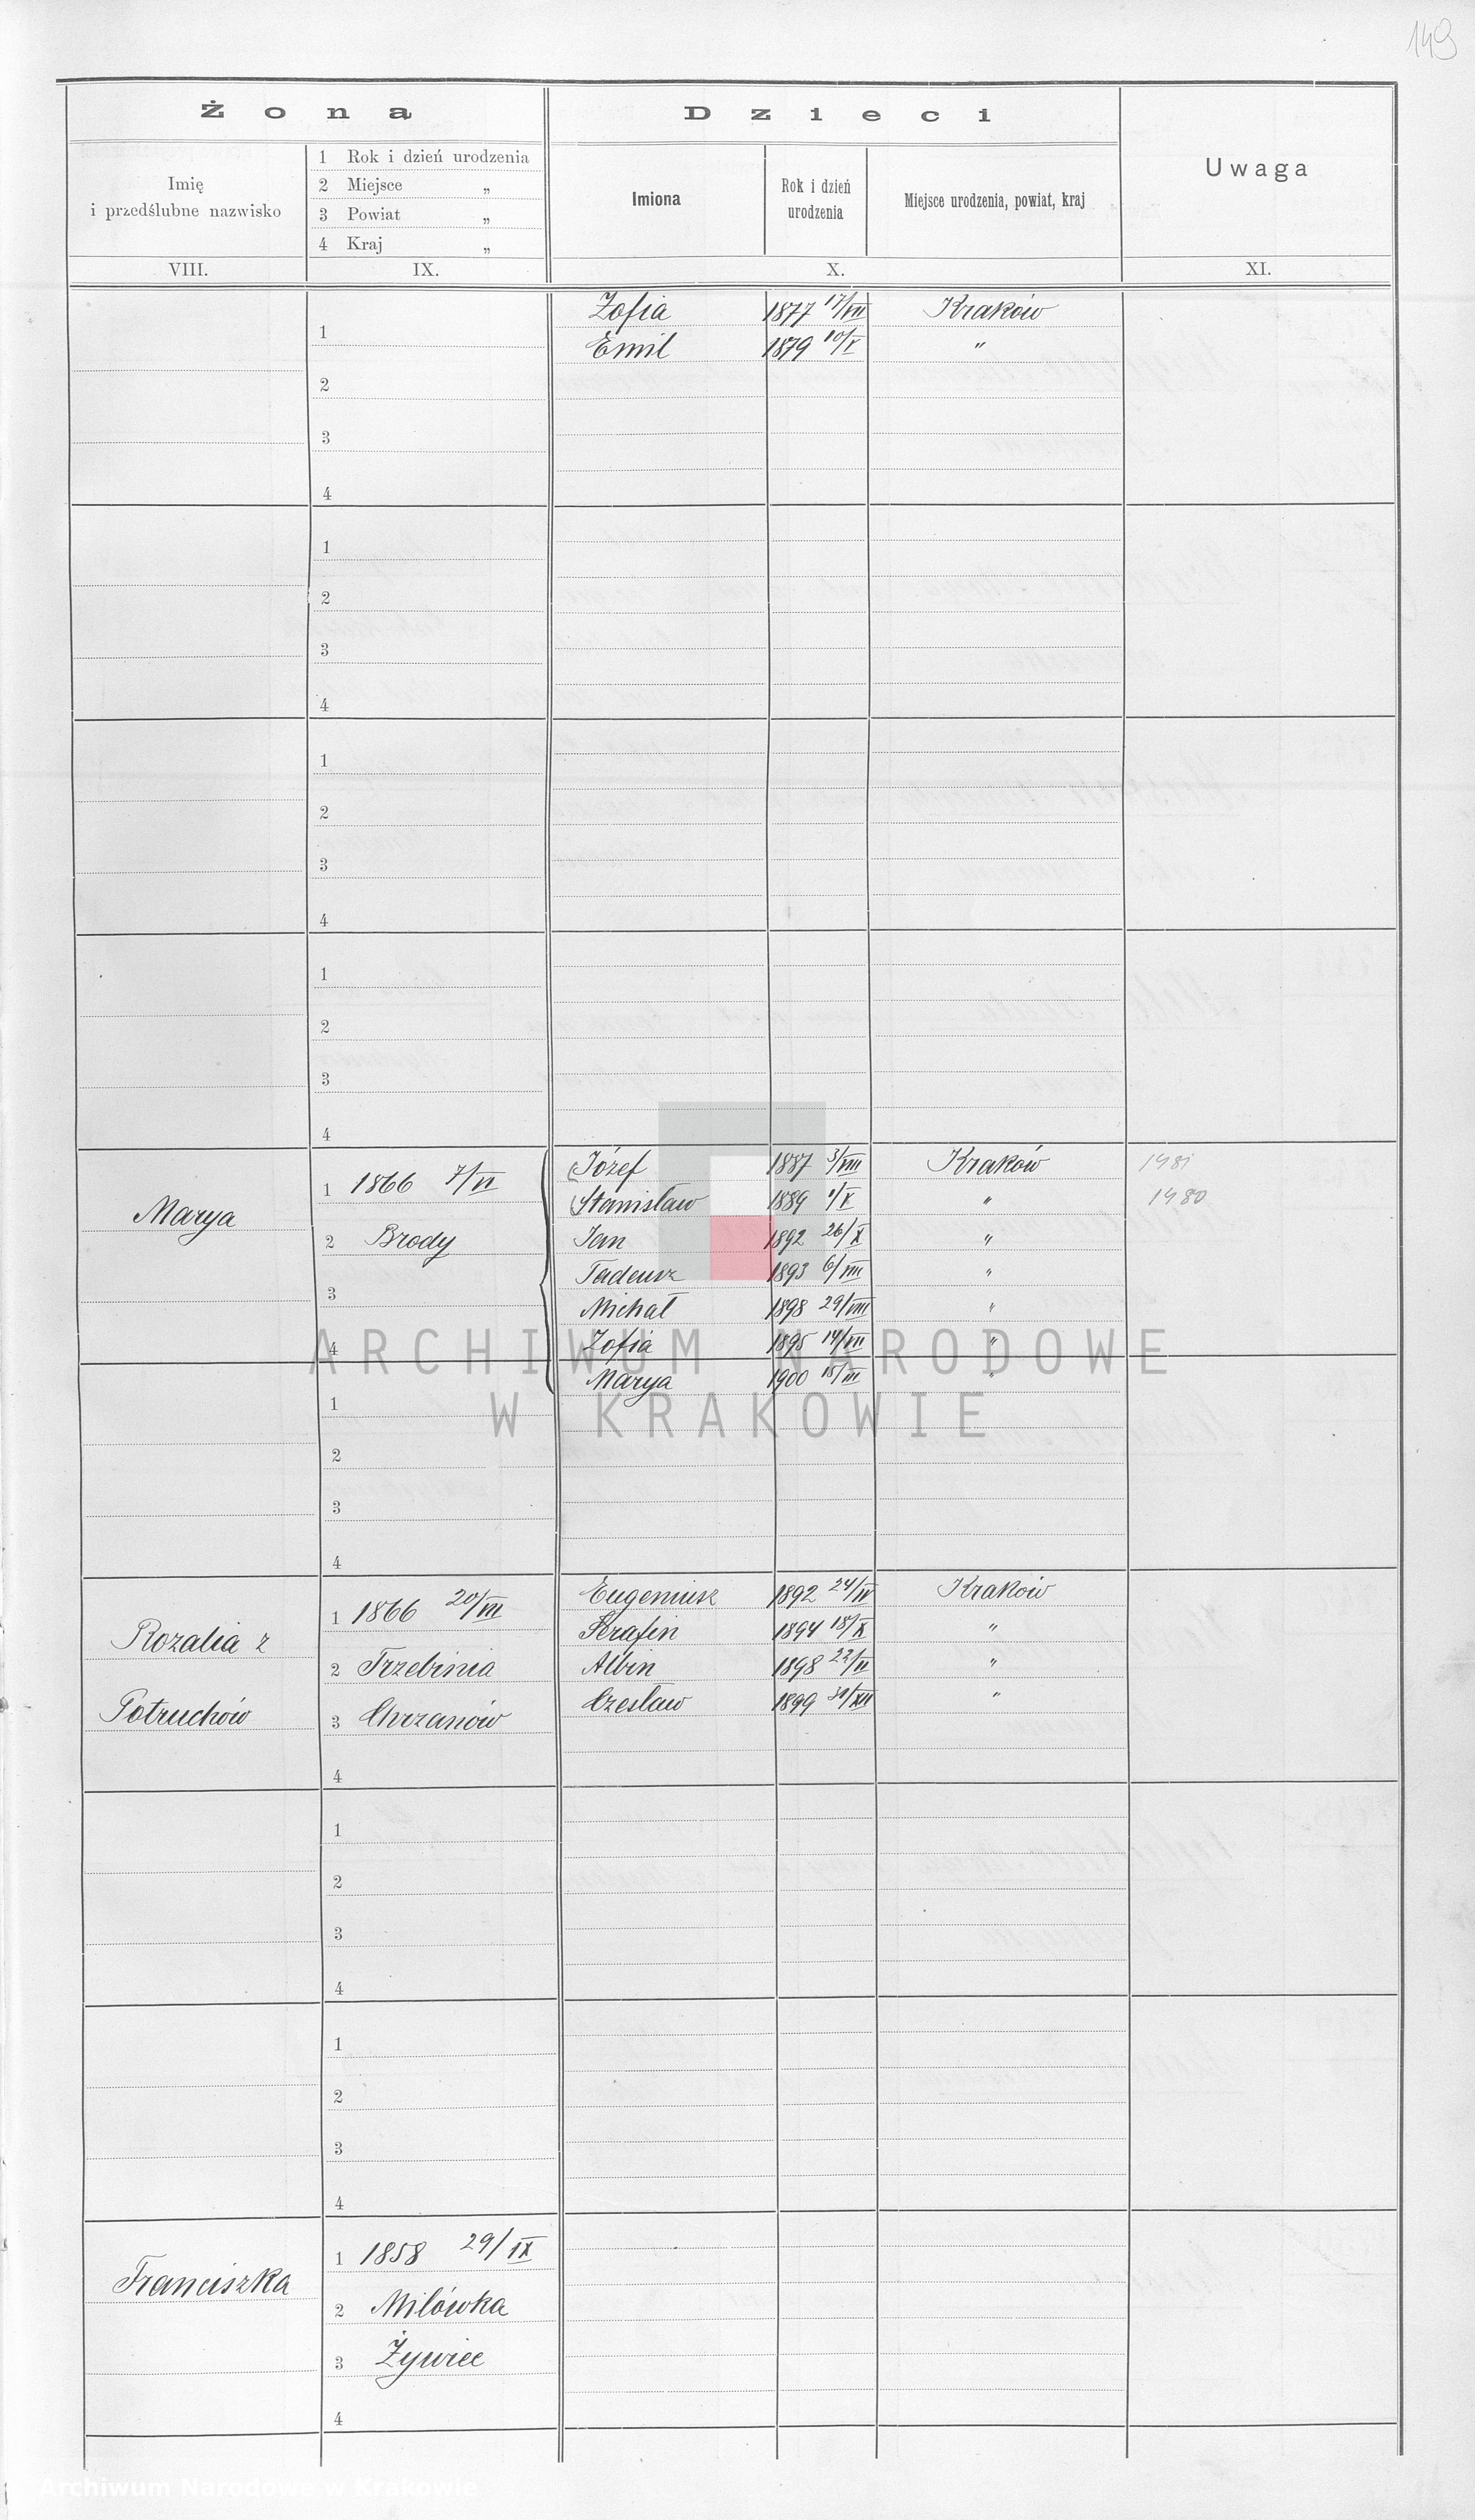 149
Żona
Dzieci
Uwaga
Imię
i przedślubne nazwisko
1 Rok i dzień urodzenia
2 Miejsce „
3 Powiat „
4 Kraj „
Imiona
Rok i dzień
urodzenia
Miejsce urodzenia, powiat, kraj
VIII. IX. X. XI.
Zofia 1877 17/VII Kraków
1
Emil 1879 10/V "
2
3
4
1
2
3
4
1
2
3
4
1
2
3
4
Marya
1 1866 7/VI
2 Brody
3
4
Józef 1887 3/VIII Kraków 1481
Stanisław 1889 1/X " 1480
Jan 1892 26/X "
Tadeusz 1893 6/VIII "
Michał 1898 29/VIII "
Zofia 1895 14/VII "
Marya 1900 15/III "
ARCHIWUM NARODOWE
W KRAKOWIE
1
2
3
4
Rozalia z
Potruchów
1 1866 20/VIII
2 Trzebinia
3 Chrzanów
4
Eugeniusz 1892 24/IV Kraków
Serafin 1894 18/X "
Albin 1898 22/II "
Czesław 1899 31/XII "
1
2
3
4
1
2
3
4
Franciszka
1 1858 29/IX
2 Milówka
3 Żywiec
4
Archiwum Narodowe w Krakowie